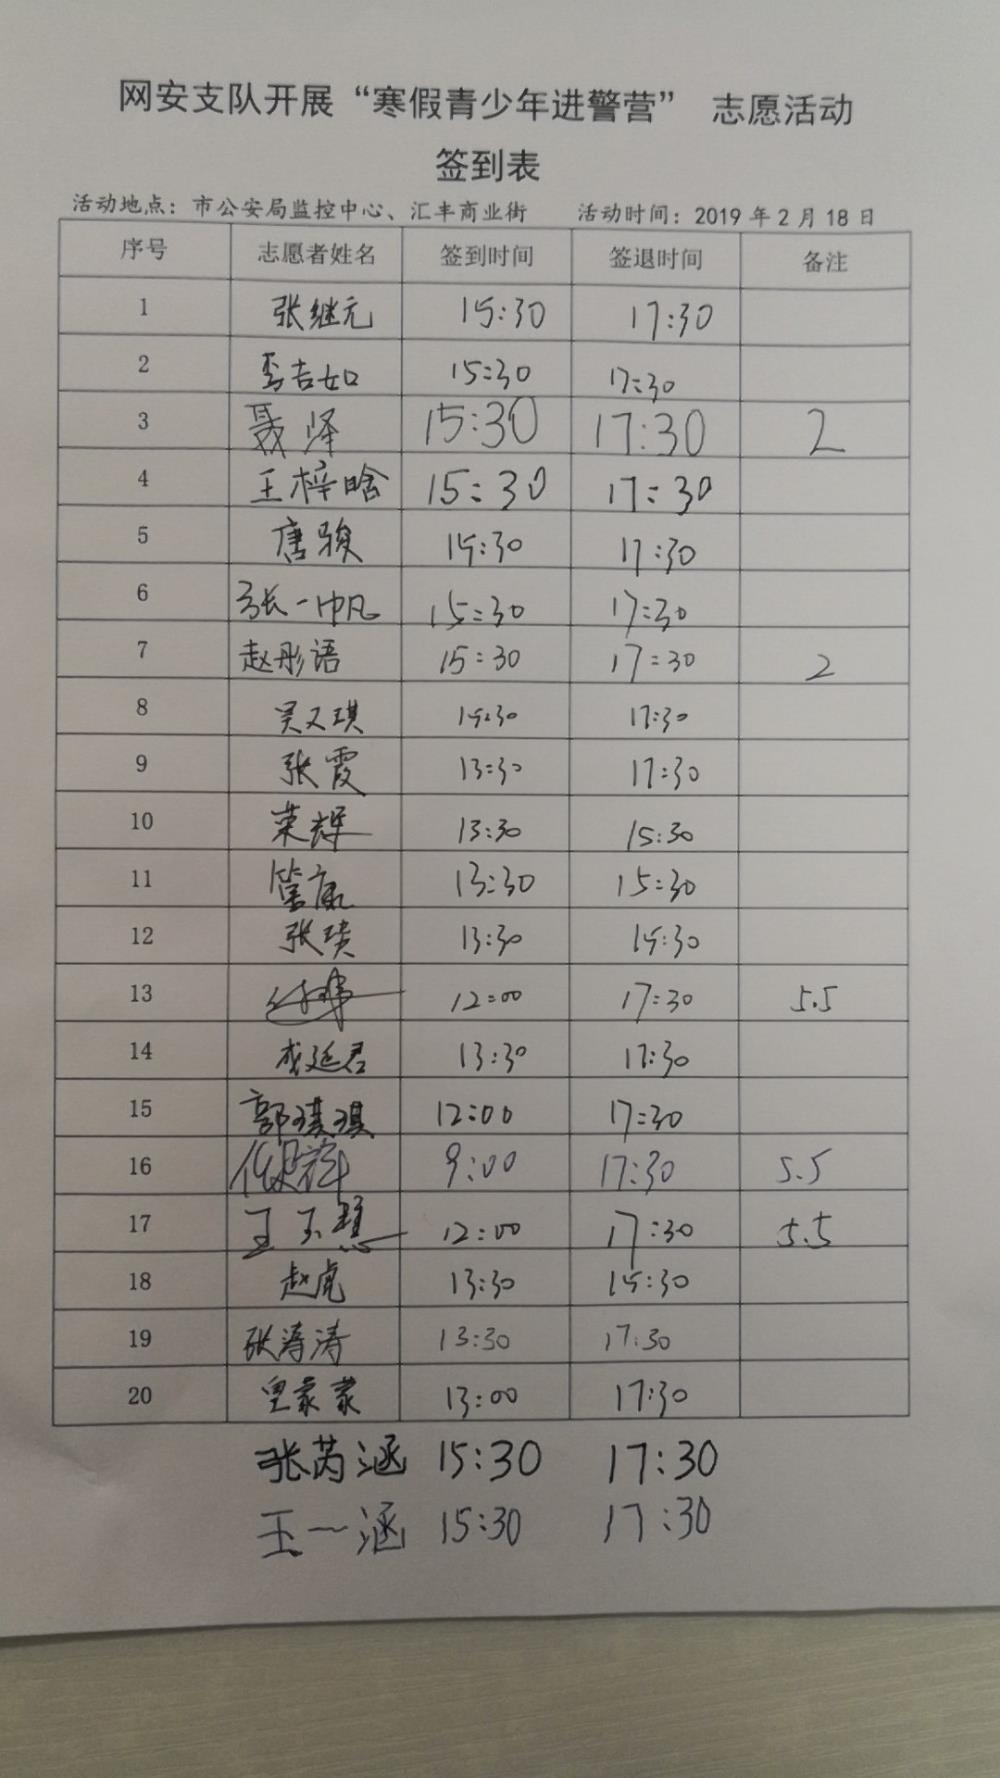 网安支队开展“寒假青少年进警营” 志愿活动
签到表
活动地点：市公安局监控中心、汇丰商业街 活动时间：2019年2月18日
序号 志愿者姓名 签到时间 签退时间 备注
1 张继元 15:30 17:30
2 李吉如 15:30 17:30
3 聂泽 15:30 17:30 2
4 王梓晗 15:30 17:30
5 唐骏 15:30 17:30
6 张一帆 15:30 17:30
7 赵彤语 15:30 17:30 2
8 吴又琪 15:30 17:30
9 张霞 13:30 17:30
10 荣辉 13:30 15:30
11 13:30 15:30
12 张瑛 13:30 15:30
13 12:00 17:30 5.5
14 成延君 13:30 17:30
15 郭琪琪 12:00 17:30
16 9:00 17:30 5.5
17 王玉慧 12:00 17:30 5.5
18 赵虎 13:30 15:30
19 张涛涛 13:30 17:30
20 13:00 17:30
张芮涵 15:30 17:30
王一涵 15:30 17:30